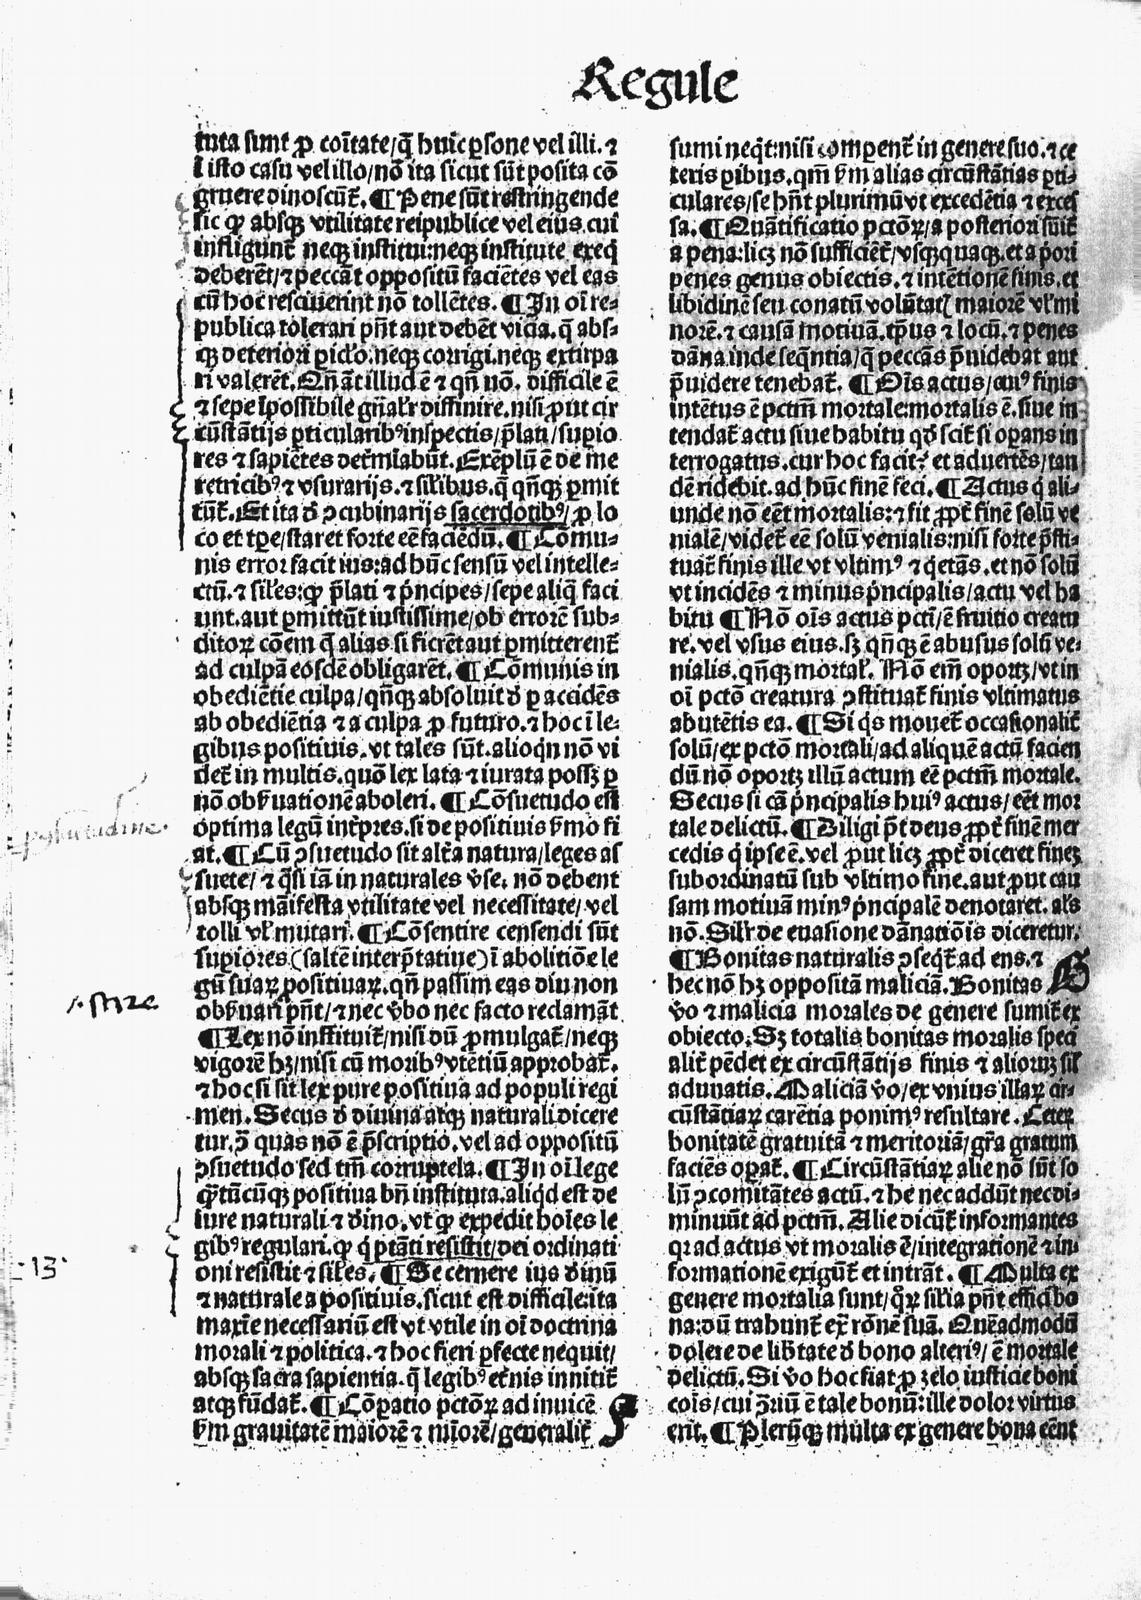 Regule
tuta sunt ꝓ coītate/q̄ huic ꝑsone vel illi.⁊
ī isto casu vel illo/nō ita sicut sūt posita cō
gruere dinoscūt̄. ¶ Pene sūt restringende
sic ꝙ absqꝫ vtilitate reipublice vel eius.cui
infligunt̄ neqꝫ institui:neqꝫ institute exeq̄
deberēt/⁊ peccāt oppositū faciētes vel eas
cū hoc resciuerint nō tollētes. ¶ In oī re⸗
publica tolerari pn̄t aut debēt vicia.q̄ abs⸗
qꝫ deteriori ꝑiclo.neqꝫ corrigi.neqꝫ extirpa
ri valerēt. Qn̄ āt illud ē ⁊ qn̄ nō. difficile ē
⁊ sepe īpossibile gn̄alr̄ diffinire.nisi ꝓut cir
cūstātijs ꝑticularibꝰ inspectis/p̄lati/suꝑio
res ⁊ sapiētes det̄mīabūt. Exēplū ē de me
retricibꝰ ⁊ vsurarijs.⁊ silibus.q̄ qn̄qꝫ ꝑmit
tūt̄. Et ita đ ꝯcubinarijs sacerdotibꝰ/ꝓ lo
co et tꝑe/staret forte eē faciēdū. ¶ Cōmu⸗
nis error facit ius:ad hūc sensū vel intelle⸗
ctū.⁊ siles:ꝙ p̄lati ⁊ pͥncipes/sepe aliq̄ faci
unt.aut ꝑmittūt iustissime/ob errorē sub⸗
ditoꝝ cōem q̄ alias si fierēt aut ꝑmitterent̄
ad culpā eosdē obligarēt. ¶ Cōmunis in
obediētie culpa/qn̄qꝫ absoluit đ ꝑ accidēs
ab obediētia ⁊ a culpa ꝓ futuro.⁊ hoc ī le⸗
gibus positiuis.vt tales sūt.alioqn̄ nō vi
det̄ in multis.quō lex lata ⁊ iurata possꝫ ꝑ
nō obẜuationē aboleri. ¶ Cōsuetudo est
optima legū int̄pres.si de positiuis ẜmo fi
at. ¶ Cū ꝯsuetudo sit alt̄a natura/leges as
suete/⁊ q̄si iā in naturales v̄se: nō debent
absqꝫ māifesta vtilitate vel necessitate/vel
tolli vl̄ mutari. ¶ Cōsentire censendi sūt
suꝑiores (saltē interp̄tatiue) ī abolitiōe le
gū suaꝝ positiuaꝝ.qn̄ passim eas diu non
obẜuari pn̄t/⁊ nec v̄bo nec facto reclamāt
¶ Lex nō instituit̄/nisi dū ꝓmulgat̄/neqꝫ
vigorē hꝫ/nisi cū moribꝰ vtētiū approbat̄.
⁊ hoc si sit lex pure positiua ad populi regi
men. Secus đ diuina atqꝫ naturali dicere
tur.ꝯ̄ quas nō ē p̄scriptio. vel ad oppositū
ꝯsuetudo sed tm̄ corruptela. ¶ In oī lege
q̄tūcūqꝫ positiua bn̄ instituta.aliqd est de
iure naturali ⁊ diͥno.vt ꝙ expedit hoīes le
gibꝰ regulari.ꝙ qͥ ptāti resistit/dei ordinati
oni resistit ⁊ siles. ¶ Decernere ius diͥnū
⁊ naturale a positiuis.sicut est difficile:ita
maxīe necessariū est vt vtile in oī doctrina
morali ⁊ politica.⁊ hoc fieri ꝑfecte nequit/
absqꝫ sacra sapientia.q̄ legibꝰ et̄nis innitit̄
atqꝫ fūdat̄. ¶ Cōꝑatio pctōꝝ ad inuicē
ẜm grauitatē maiorē ⁊ miorē/generalit̄ F
sumi neqͥt:nisi compenent̄ in genere suo.⁊ ce
teris ꝑibus.qm̄ ẜm alias circūstātias ꝑti⸗
culares/se hn̄t plurimū vt excedētia ⁊ exces
sa. ¶ Quātificatio pctōꝝ/a posteriori sūit̄
a pena:licꝫ nō sufficiēt̄/vsqꝫquaqꝫ.et a pͥori
penes genus obiectis.⁊ intētionē finis.et
libidinē seu conatū volūtatꝭ maiorē vl̄ mi
norē.⁊ causā motiuā.tp̄us ⁊ locū.⁊ penes
dāna inde seqn̄tia/q̄ peccās p̄uidebat aut
p̄uidere tenebat̄. ¶ Oīs actus/cuiꝰ finis
intētus ē pctm̄ mortale:mortalis ē.siue in
tendat̄ actu siue habitu qđ scit̄ si oꝑans in
terrogatus.cur hoc facit: et aduertēs/tan
dē ridebit.ad hūc finē feci. ¶ Actus qͥ ali⸗
unde nō eēt mortalis:⁊ fit ꝓpt̄ finē solū ve
nialē/videt̄ eē solū venialis:nisi forte p̄sti⸗
tuat̄ finis ille vt vltimꝰ ⁊ qͥetās.et nō solū
vt incidēs ⁊ minus pͥncipalis/actu vel ha
bitu ¶ Nō oīs actus pcti/ē fruitio creatu
re.vel vsus eius.sꝫ qn̄qꝫ ē abusus solū ve⸗
nialis.qn̄qꝫ mortal̄. Nō em̄ oportꝫ/vt in
oī pctō creatura ꝯstituat̄ finis vltimatus
abutētis ea. ¶ Si qͥs mouet̄ occasionalit̄
solū/ex pctō mortali/ad aliquē actū facien
dū nō oportꝫ illū actum eē pctm̄ mortale.
Secus si cā pͥncipalis huiꝰ actus/eēt mor
tale delictū. ¶ Diligi pōt deus ꝓpt̄ finē mer
cedis qͥ ipse ē.vel ꝓut licꝫ ꝓpt̄ diceret fineꝫ
subordinatū sub vltimo fine.aut ꝓut cau
sam motiuā minꝰ pͥncipalē denotaret. als̄
nō. Silr̄ de euasione dānatiōis diceretur.
¶ Bonitas naturalis ꝯseqͥt̄ ad ens.⁊ G
hec nō hꝫ oppositā maliciā. Bonitas
v̄o ⁊ malicia morales de genere sumit̄ ex
obiecto. Sꝫ totalis bonitas moralis speci
alit̄ pēdet ex circūstātijs finis ⁊ alioruꝫ sil̄
adunatis. Maliciā v̄o/ex vnius illaꝝ cir⸗
cūstātiaꝝ carētia ponimꝰ resultare. Ceteꝝ
bonitatē gratuitā ⁊ meritoriā/gr̄a gratum
faciēs oꝑat̄. ¶ Circūstātiaꝝ alie nō sūt so
lū ꝯcomitātes actū.⁊ he nec addūt nec di⸗
minuūt ad pctm̄. Alie dicūt̄ informantes
qr ad actus vt moralis ē/integrationē ⁊ in⸗
formationē exigūt̄ et intrāt. ¶ Multa ex
genere mortalia sunt/qͦꝝ silia pn̄t effici bo
na:dū trahunt̄ ex̄ rōnē suā. Quēadmodū
dolere de lib̄tate đ bono alteriꝰ/ē mortale
delictū. Si v̄o hoc fiat ꝓ zelo iusticie boni
cōis/cui ꝯ̄riū ē tale bonū:ille dolor virtus
erit. ¶ Plerūqꝫ multa ex genere bona eēnt
13.